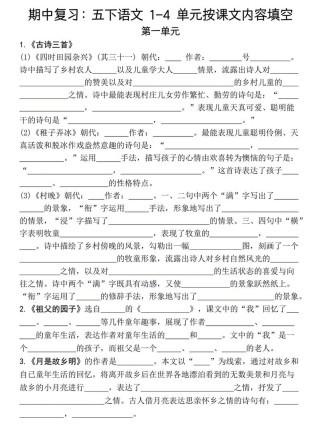 期中复习：五下语文 1-4 单元按课文内容填空
第一单元
1.《古诗三首》
(1)《四时田园杂兴》(其三十一) 朝代：____ 作者：______号______。
诗中描写了乡村农人________以及儿童学大人________情景，流露出诗人对
________之情。诗中最能表现村庄儿女劳作繁忙、勤劳的诗句是：______
____________，____________。诗中最能表现儿童天真可爱、聪明能
干的诗句是：____________，____________。
(2)《稚子弄冰》朝代：____作者：______。诗歌最能表现儿童聪明伶俐、天
真活泼和脱冰作戏盎然意趣的诗句是：____________，____________
____。运用____________手法，描写孩子的心情由欢喜转为懊恼的句子是：
____________，____________。这首诗表达了孩子____________、
____________的性格特点。
(3)《村晚》朝代：____作者：____。一、二句中两个“满”字写出了______
____的景象，“衔”字运用____手法，形象地写出了________________
的情景，“浸”字描写了________________情景。三、四句中“横”
字表明牧童____________，表现了牧童的________，________
____。诗中描绘了乡村傍晚的风景，勾勒出一幅________图，刻画了一个
________的牧童形象，表达诗人对________，以及对生活的喜爱与向
往之情。诗中两个“满”字既具有动感，又形象写出诗人____________之情。
“衔”字运用了____的修辞手法，形象地写出了____________的情景。
2.《祖父的园子》选自________的《________》，课文中的“我”回忆了
______、______、________等几件童年趣事，展现了______________
的童年生活，也表达作者对童年生活____________之情。课文中的“我”
是一个________________的孩子，祖父是一位________的老人。
3.《月是故乡明》的作者是________。本文以“____”为线索，通过对故乡和
自己童年生活的回忆，将离开故乡后在世界各地漂泊看到的无数美妙绝伦的月亮与
故乡的小月亮进行______，表达了____________________
____________之情。古人借月亮进行表达思亲怀乡之情的诗句有很多，如：